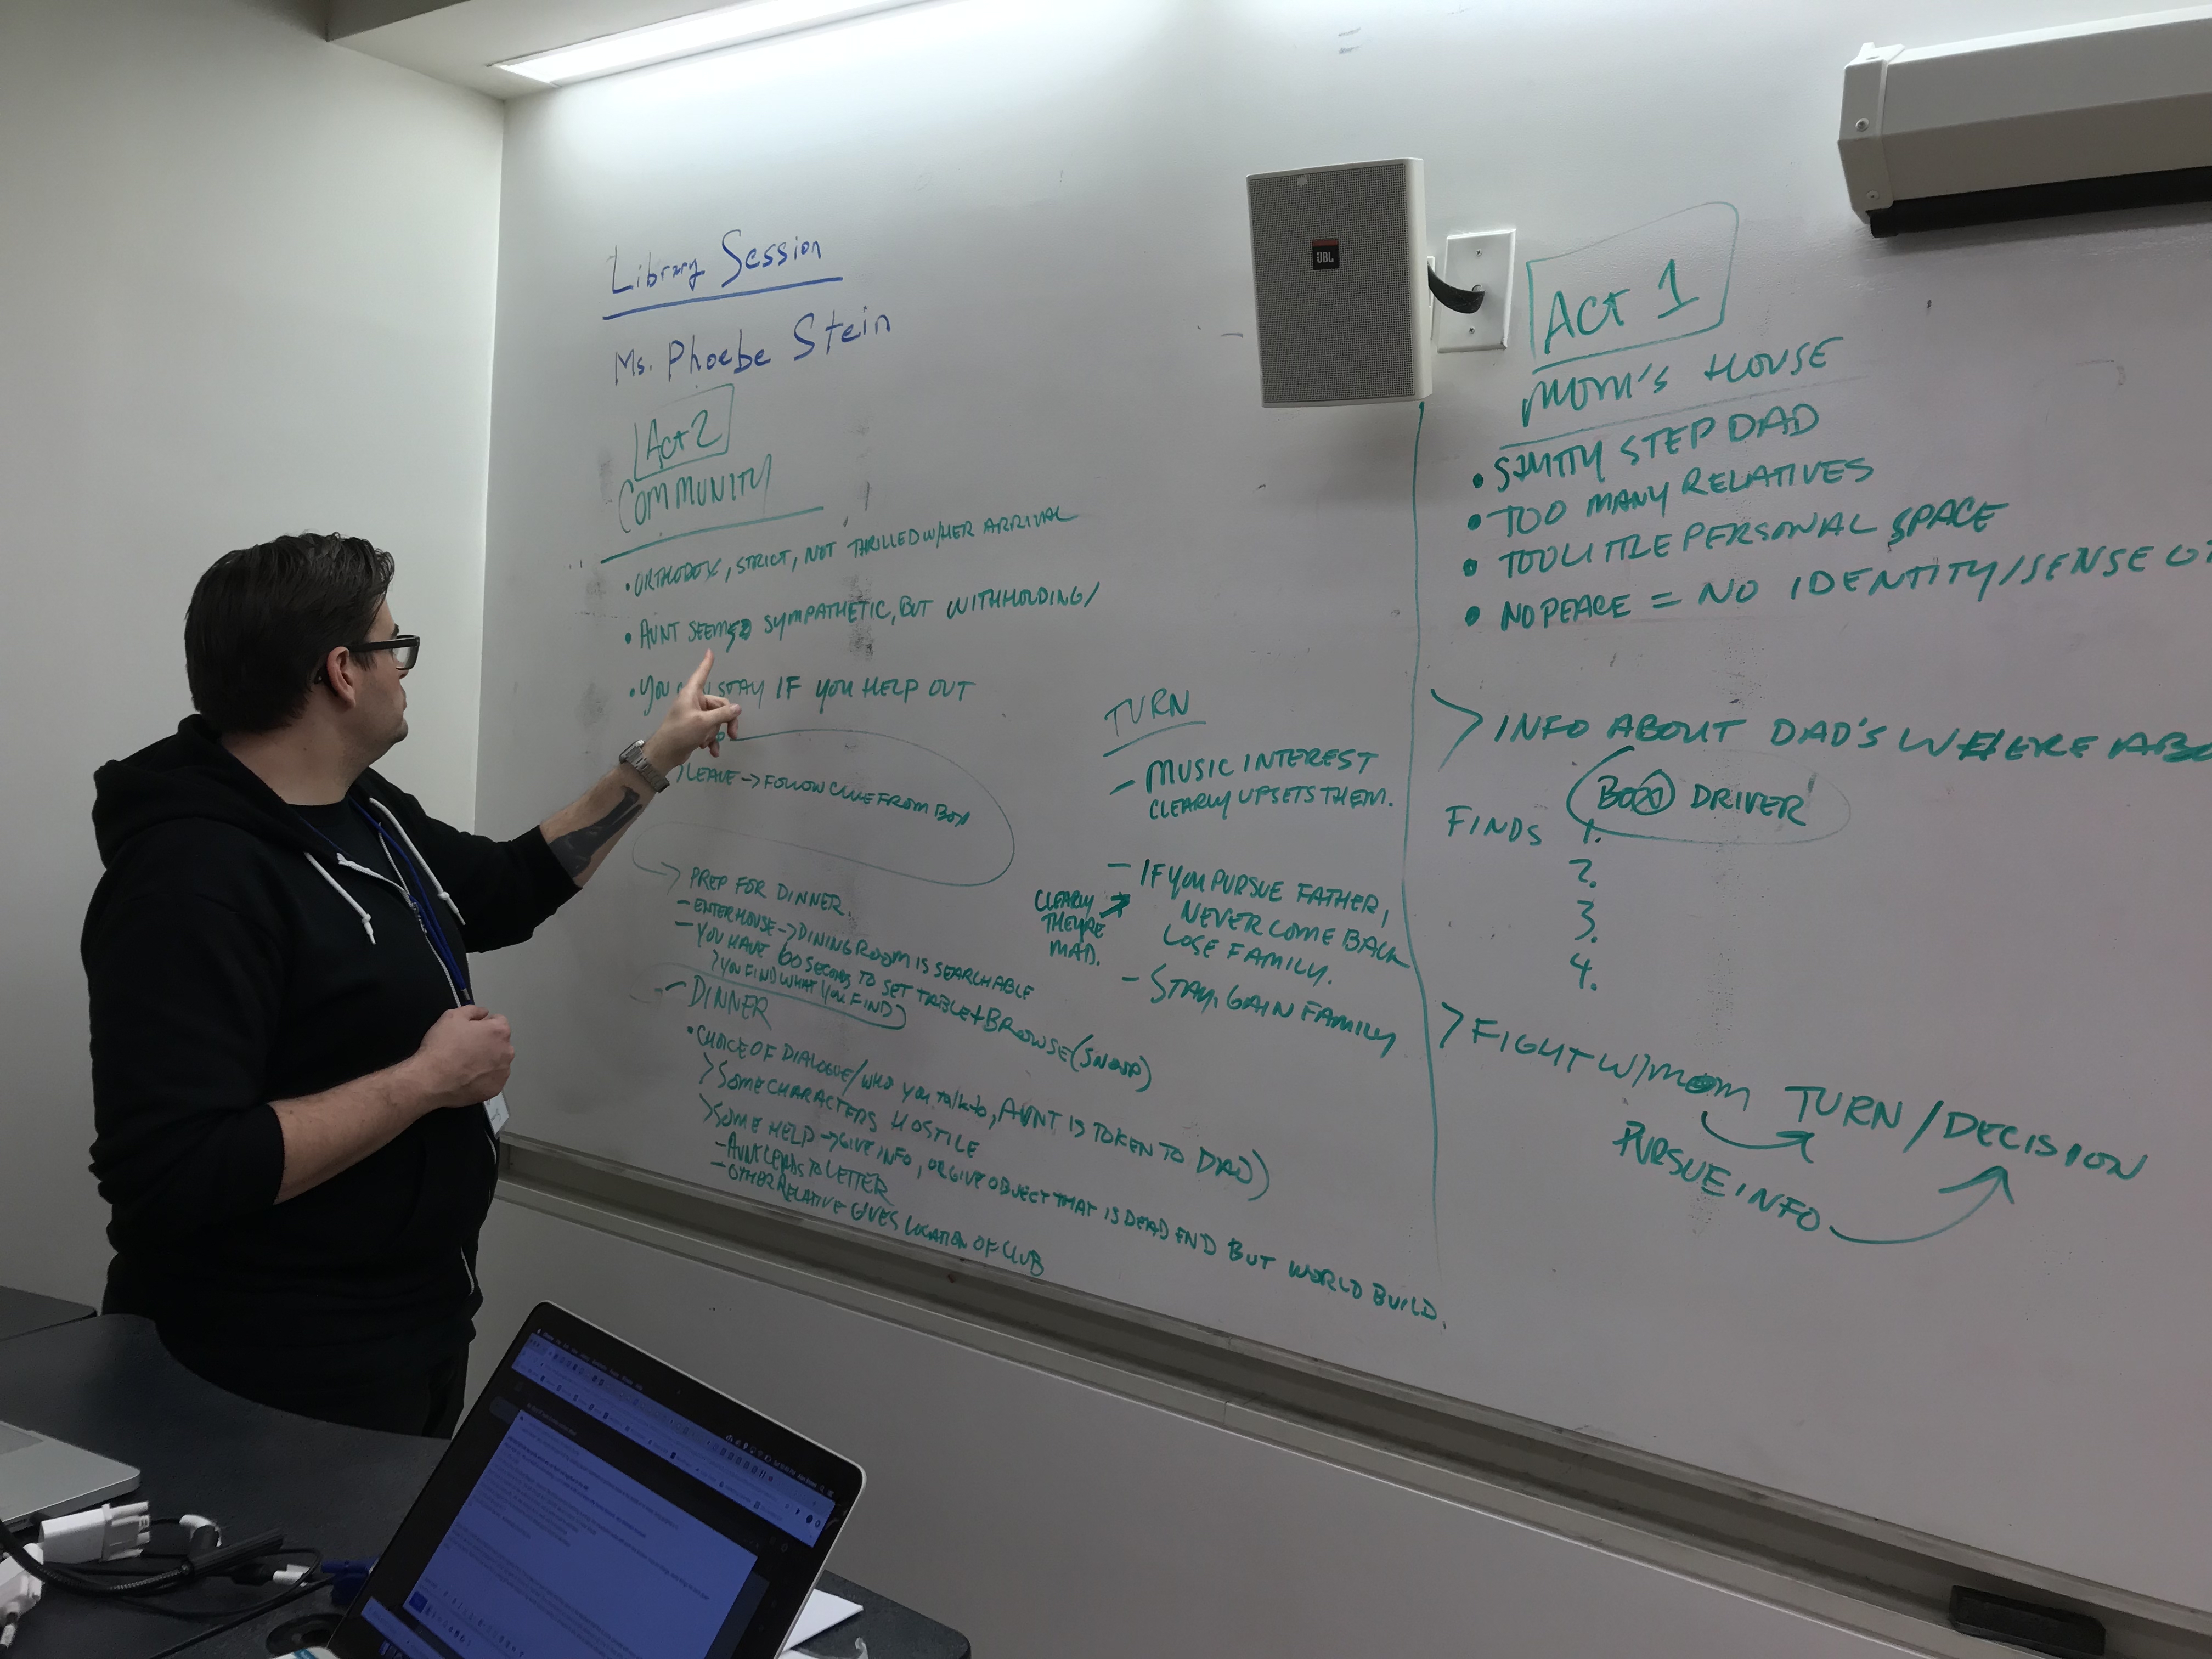 Library Session
Ms. Phoebe Stein
Act 2
COMMUNITY
• ORTHODOX, STRICT, NOT THRILLED W/HER ARRIVAL
• AUNT SEEMS SYMPATHETIC, BUT WITHHOLDING/
• YOU STAY IF YOU HELP OUT
> LEAVE → FOLLOW CLUE FROM BOX
→ PREP FOR DINNER.
- ENTER HOUSE → DINING ROOM IS SEARCHABLE
- YOU HAVE 60 SECONDS TO SET TABLE + BROWSE (SNOOP)
> YOU FIND WHAT YOU FIND
- DINNER
• CHOICE OF DIALOGUE/WHO YOU talk to, AUNT IS TOKEN TO DAD)
> SOME CHARACTERS HOSTILE
> SOME HELP → GIVE INFO, OR GIVE OBJECT THAT IS DEAD END BUT WORLD BUILD
- AUNT LEADS TO LETTER
- OTHER RELATIVE GIVES LOCATION OF CLUB
TURN
- MUSIC INTEREST
CLEARLY UPSETS THEM.
- IF YOU PURSUE FATHER,
NEVER COME BACK
LOSE FAMILY.
CLEARLY
THEY'RE
MAD.
- STAY, GAIN FAMILY
JBL
Act 1
MOM'S HOUSE
• SHITTY STEP DAD
• TOO MANY RELATIVES
• TOO LITTLE PERSONAL SPACE
• NO PEACE = NO IDENTITY/SENSE OF
> INFO ABOUT DAD'S
BOX DRIVER
FINDS 1.
2.
3.
4.
> FIGHT W/MOM TURN/DECISION
PURSUE INFO